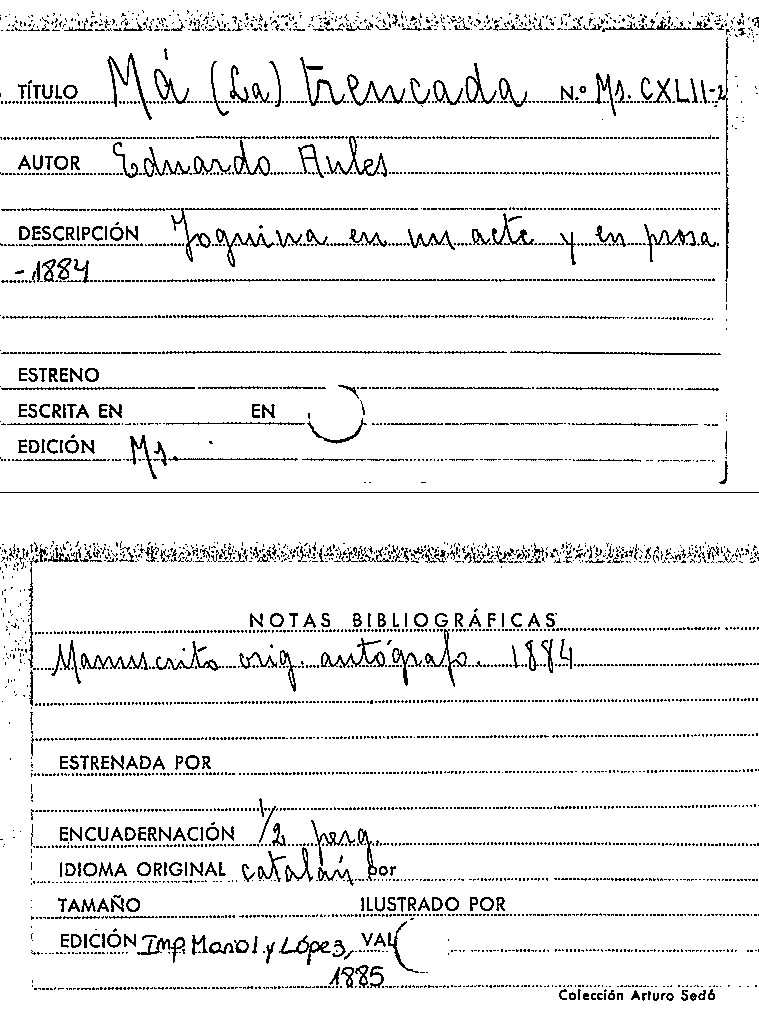 TÍTULO Má (La) trencada N.º Ms. CXLII-2
AUTOR Eduardo Aules
DESCRIPCIÓN Joguina en un acte y en prosa
- 1884
ESTRENO
ESCRITA EN EN
EDICIÓN Ms.
NOTAS BIBLIOGRÁFICAS
Manuscrito orig. autógrafo. 1884
ESTRENADA POR
ENCUADERNACIÓN 1/2 perg.
IDIOMA ORIGINAL catalán por
TAMAÑO ILUSTRADO POR
EDICIÓN Imp. y López, VAL
1885
Colección Arturo Sedó